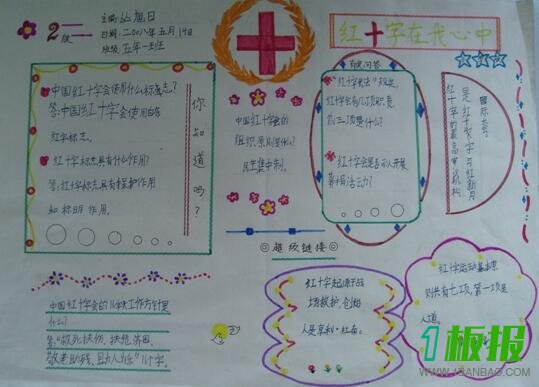 2版
主编:丛旭日
日期:二00八年五月19日
班级:五年一班
红十字在我心中
中国红十字会使用什么标志?
答:中国红十字会使用白底
红字标志。
红十字标志具有什么作用?
答:红十字标志具有保护作用
和标明作用。
你知道吗?
中国红十字会的
组织原则是什么?
民主集中制。
有奖问答
"红十字会法"规定,
红十字会有几项职责,
前三项是什么?
红十字会是否可以开展
募捐活动?
国际大会
是红十字会与红新月
红十字的最高审议机构
◎超级链接◎
中国红十字会的八字大工作方针是
什么?
答:"救死扶伤、扶危济困、
敬老助残、助人为乐"八字。
红十字起源于战
场救护,创始
人是亨利·杜南。
红十字运动基本原
则共有七项,第一项是
人道。
1板报
WWW.1BANBAO.COM